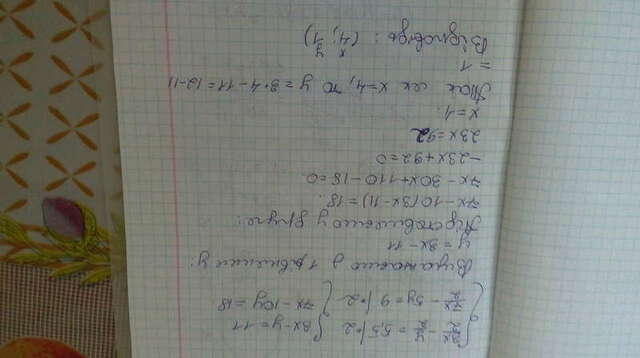 {3x/2 - y/2 = 5,5 | ·2 {3x-y=11
{7x/2 - 5y = 9 | ·2 {7x-10y=18
Виражаємо з 1 рівнення y:
y = 3x-11
Підставляємо у друге:
7x-10(3x-11)=18
7x-30x+110-18=0
-23x+92=0
23x=92
x=4.
Так як x=4, то y=3·4-11=12-11
=1
x y
Відповідь: (4; 1)